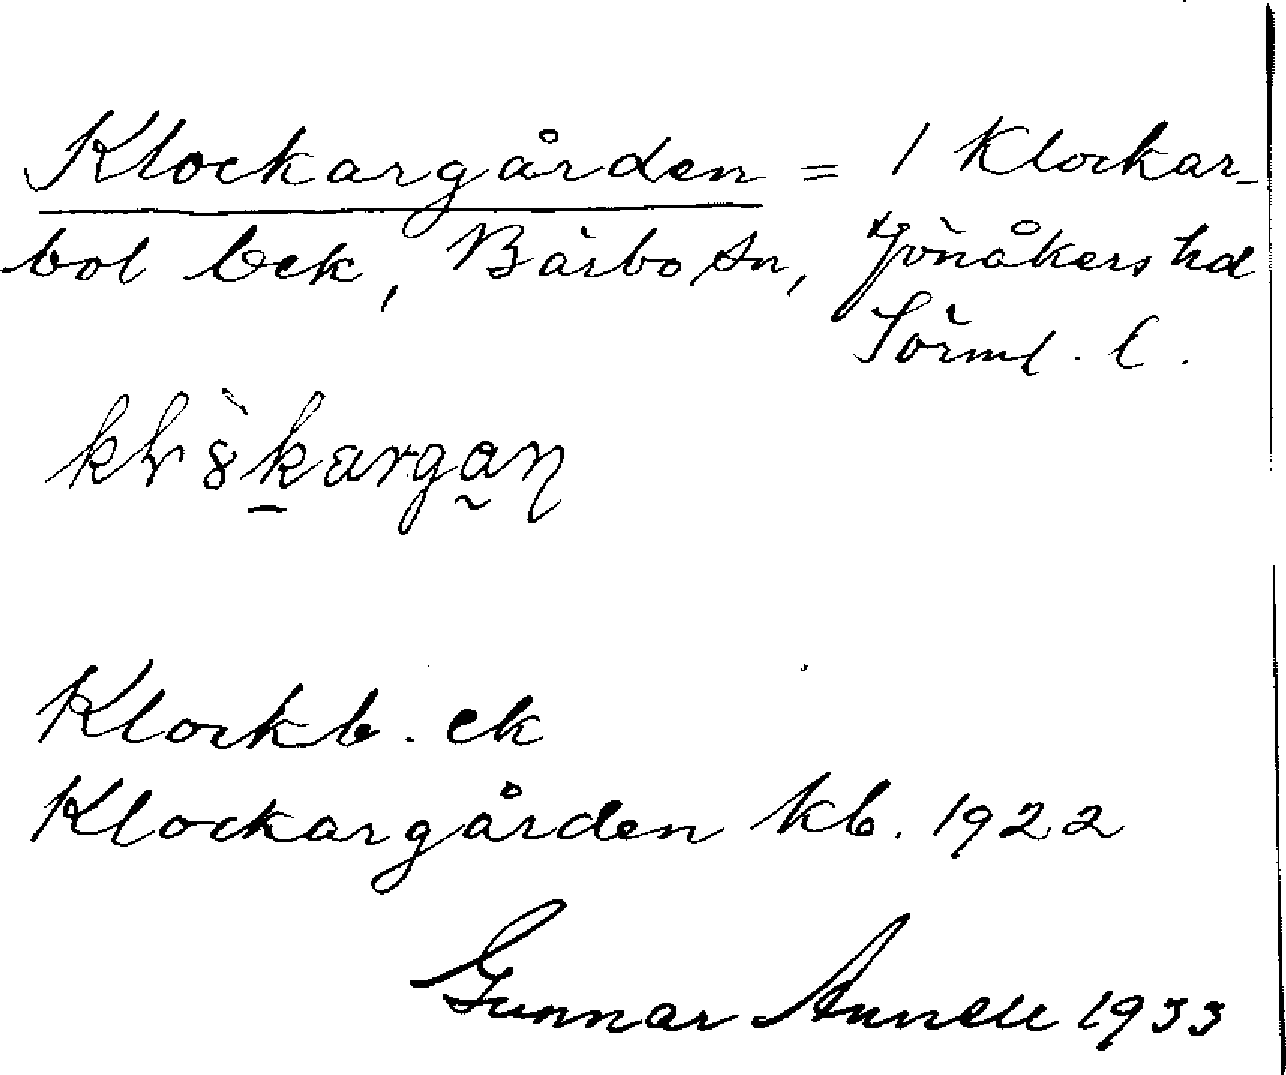 Klockargården = 1 Klockar-
bol Eck, Bärbo sn, Jönåkers hd
Sörml. l.
Klockb. ek
Klockargården kb. 1922
Gunnar Annell 1933